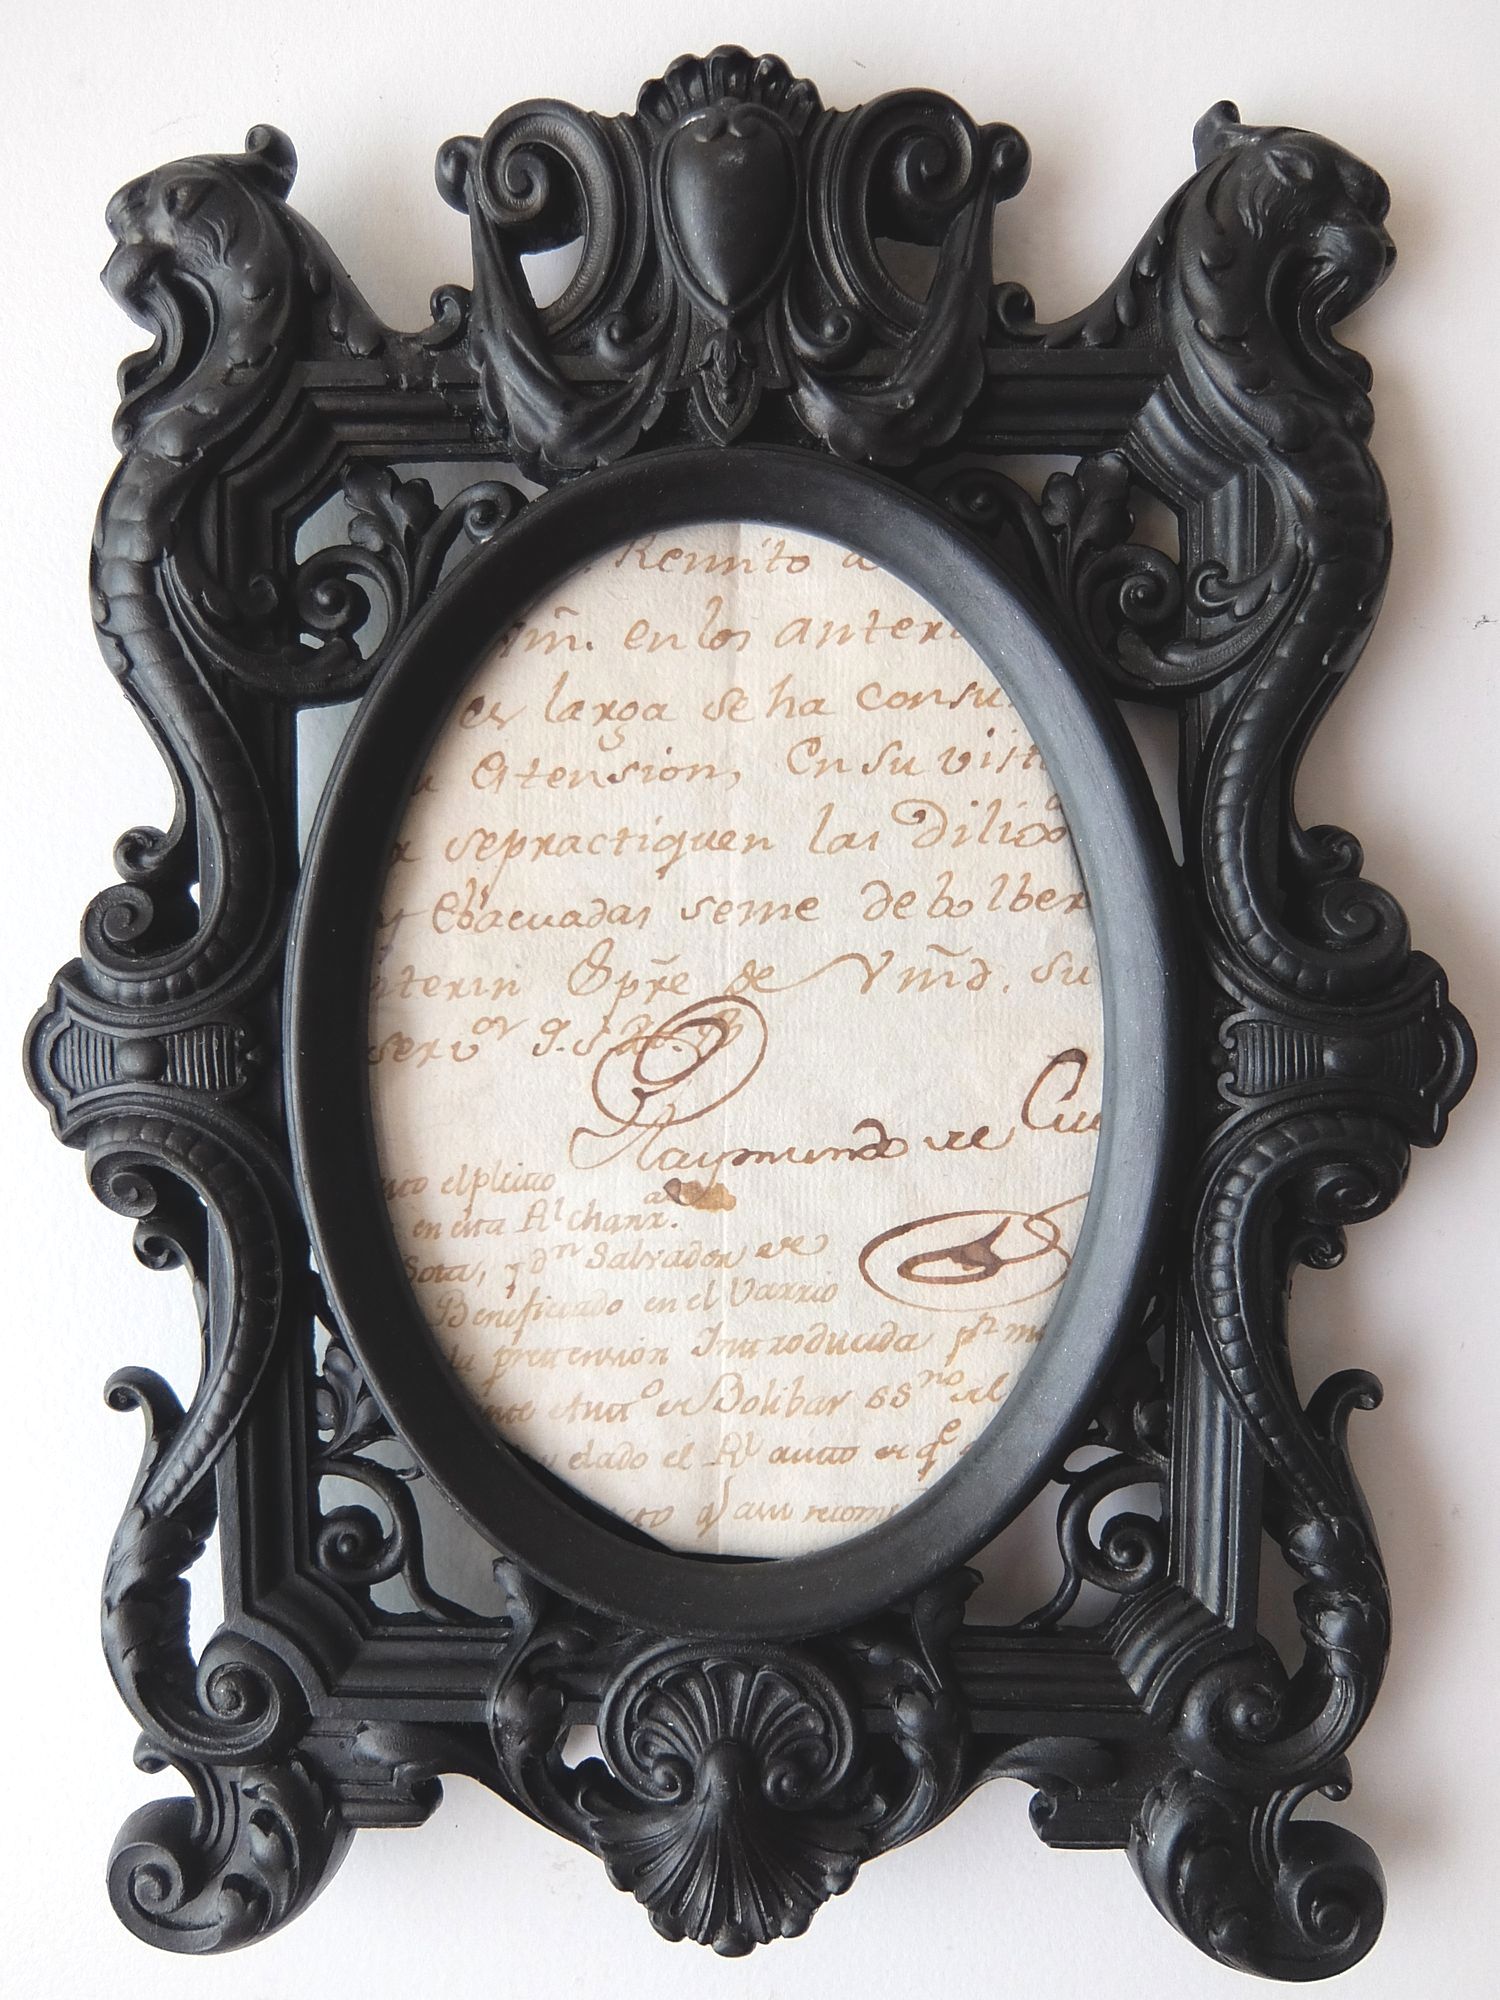 Remito a
Vm. en los anteri
es larga se ha consu
Extension, En su vist
se practiquen las dilig.
y Ebacuadas seme debolber
interin Gpre. de Vmd. su
serv.or q. s. m. B.
Raymundo de Cu
el pleito
en esta Rl chanz.a
Sota, y dn Salvador de
Beneficiado en el Varrio
la pretension Introducida pr
de Bolibar ssno del
y dado el Rl auto de qe
q asu recom